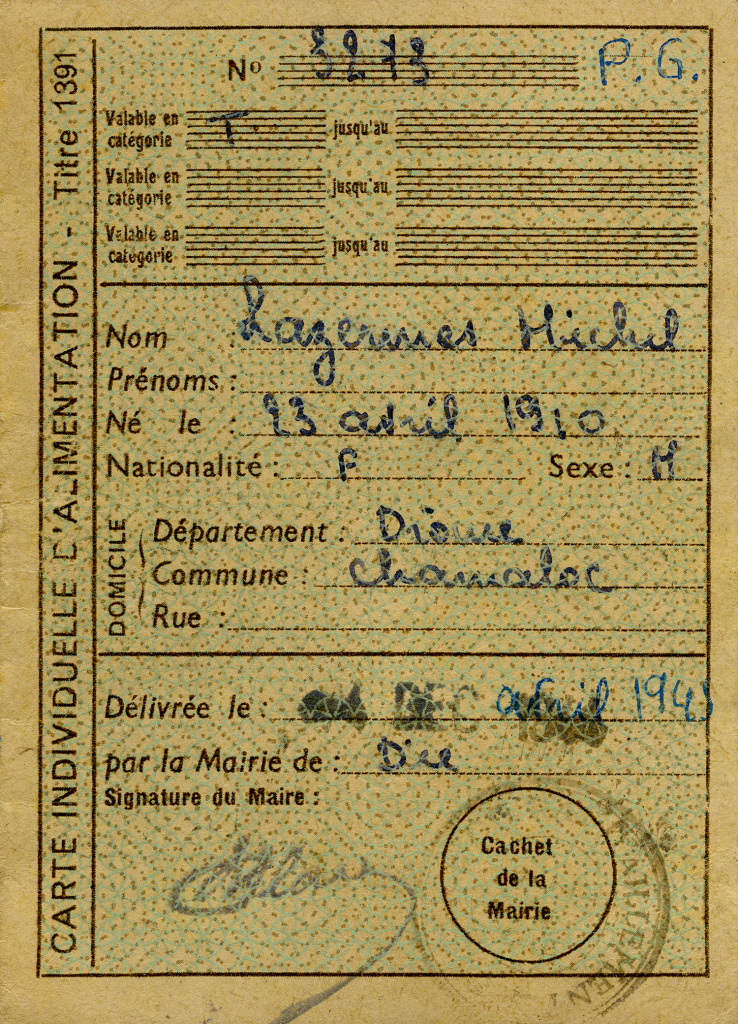 CARTE INDIVIDUELLE D'ALIMENTATION - Titre 1391
No 3273 P. G.
Valable en catégorie T jusqu'au
Valable en catégorie jusqu'au
Valable en catégorie jusqu'au
Nom : Lazermes Michel
Prénoms :
Né le : 23 avril 1910
Nationalité : F Sexe : H
DOMICILE
Département : Drôme
Commune : Chamaloc
Rue :
Délivrée le : DEC avril 1943
par la Mairie de : Die
Signature du Maire :
Cachet
de la
Mairie